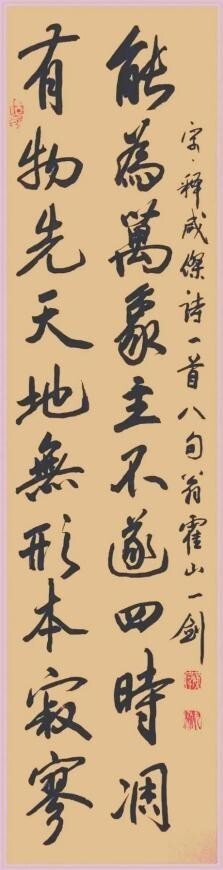 有物先天地無形本寂寥
能為萬象主不逐四時凋
宋·釋咸傑詩一首八旬翁霍山一劍